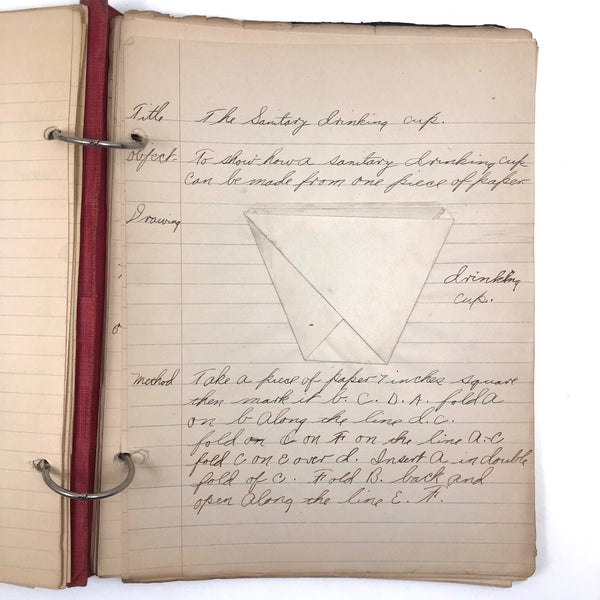 Title The Sanitary drinking cup.
Object- To show how a sanitary drinking cup
can be made from one piece of paper.
Drawing
drinking
cup.
Method Take a piece of paper 7 inches square
then mark it b. C. D. A. fold A
on b Along the line d. C.
fold on C on F on the line A-C
fold C on E over d. Insert A in double
fold of C. Fold B. back and
open along the line E. F.